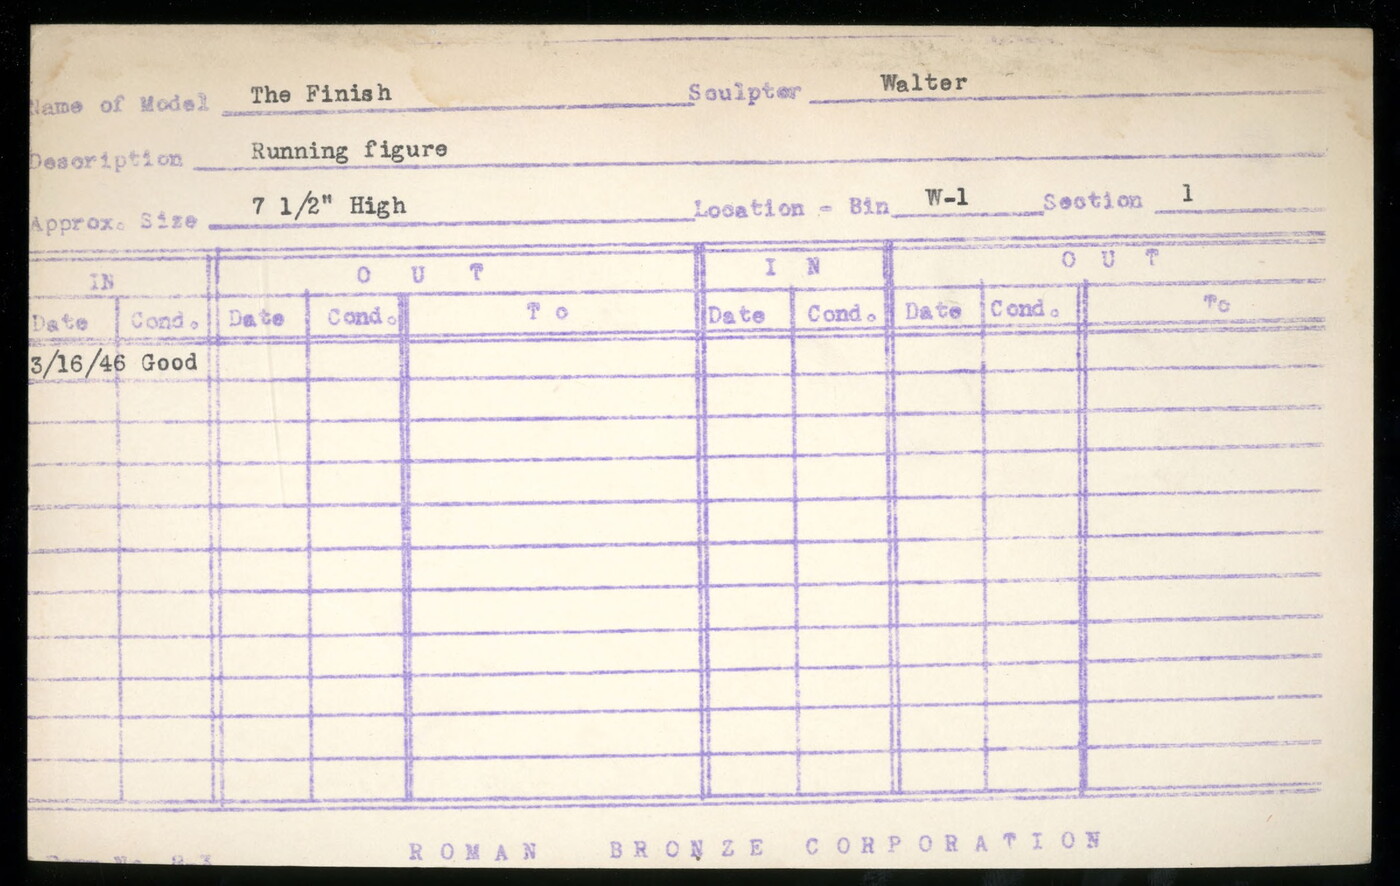 Name of Model The Finish Sculptor Walter
Description Running figure
Approx. Size 7 1/2" High Location - Bin W-1 Section 1
IN OUT IN OUT
Date Cond. Date Cond. To Date Cond. Date Cond. To
3/16/46 Good
ROMAN BRONZE CORPORATION
Form No.